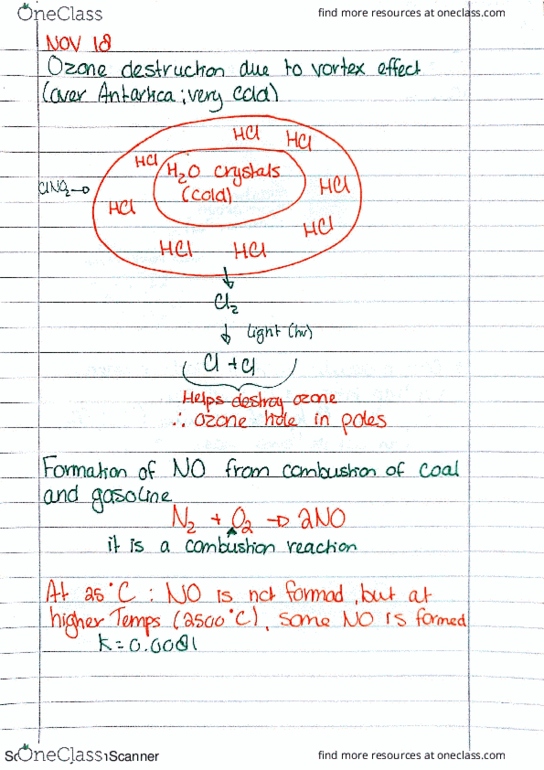 OneClass find more resources at oneclass.com
NOV 18
Ozone destruction due to vortex effect
(over Antartica; very cold)
HCl HCl
HCl H₂O crystals
ClNO₂→ (cold) HCl
HCl
HCl
HCl HCl
↓
Cl₂
↓ light (hν)
Cl + Cl
Helps destroy ozone
∴ ozone hole in poles
Formation of NO from combustion of coal
and gasoline
N₂ + O₂ → 2NO
it is a combustion reaction
At 25°C : NO is not formed, but at
higher Temps (2500°C), some NO is formed
OneClass Scanner find more resources at oneclass.com